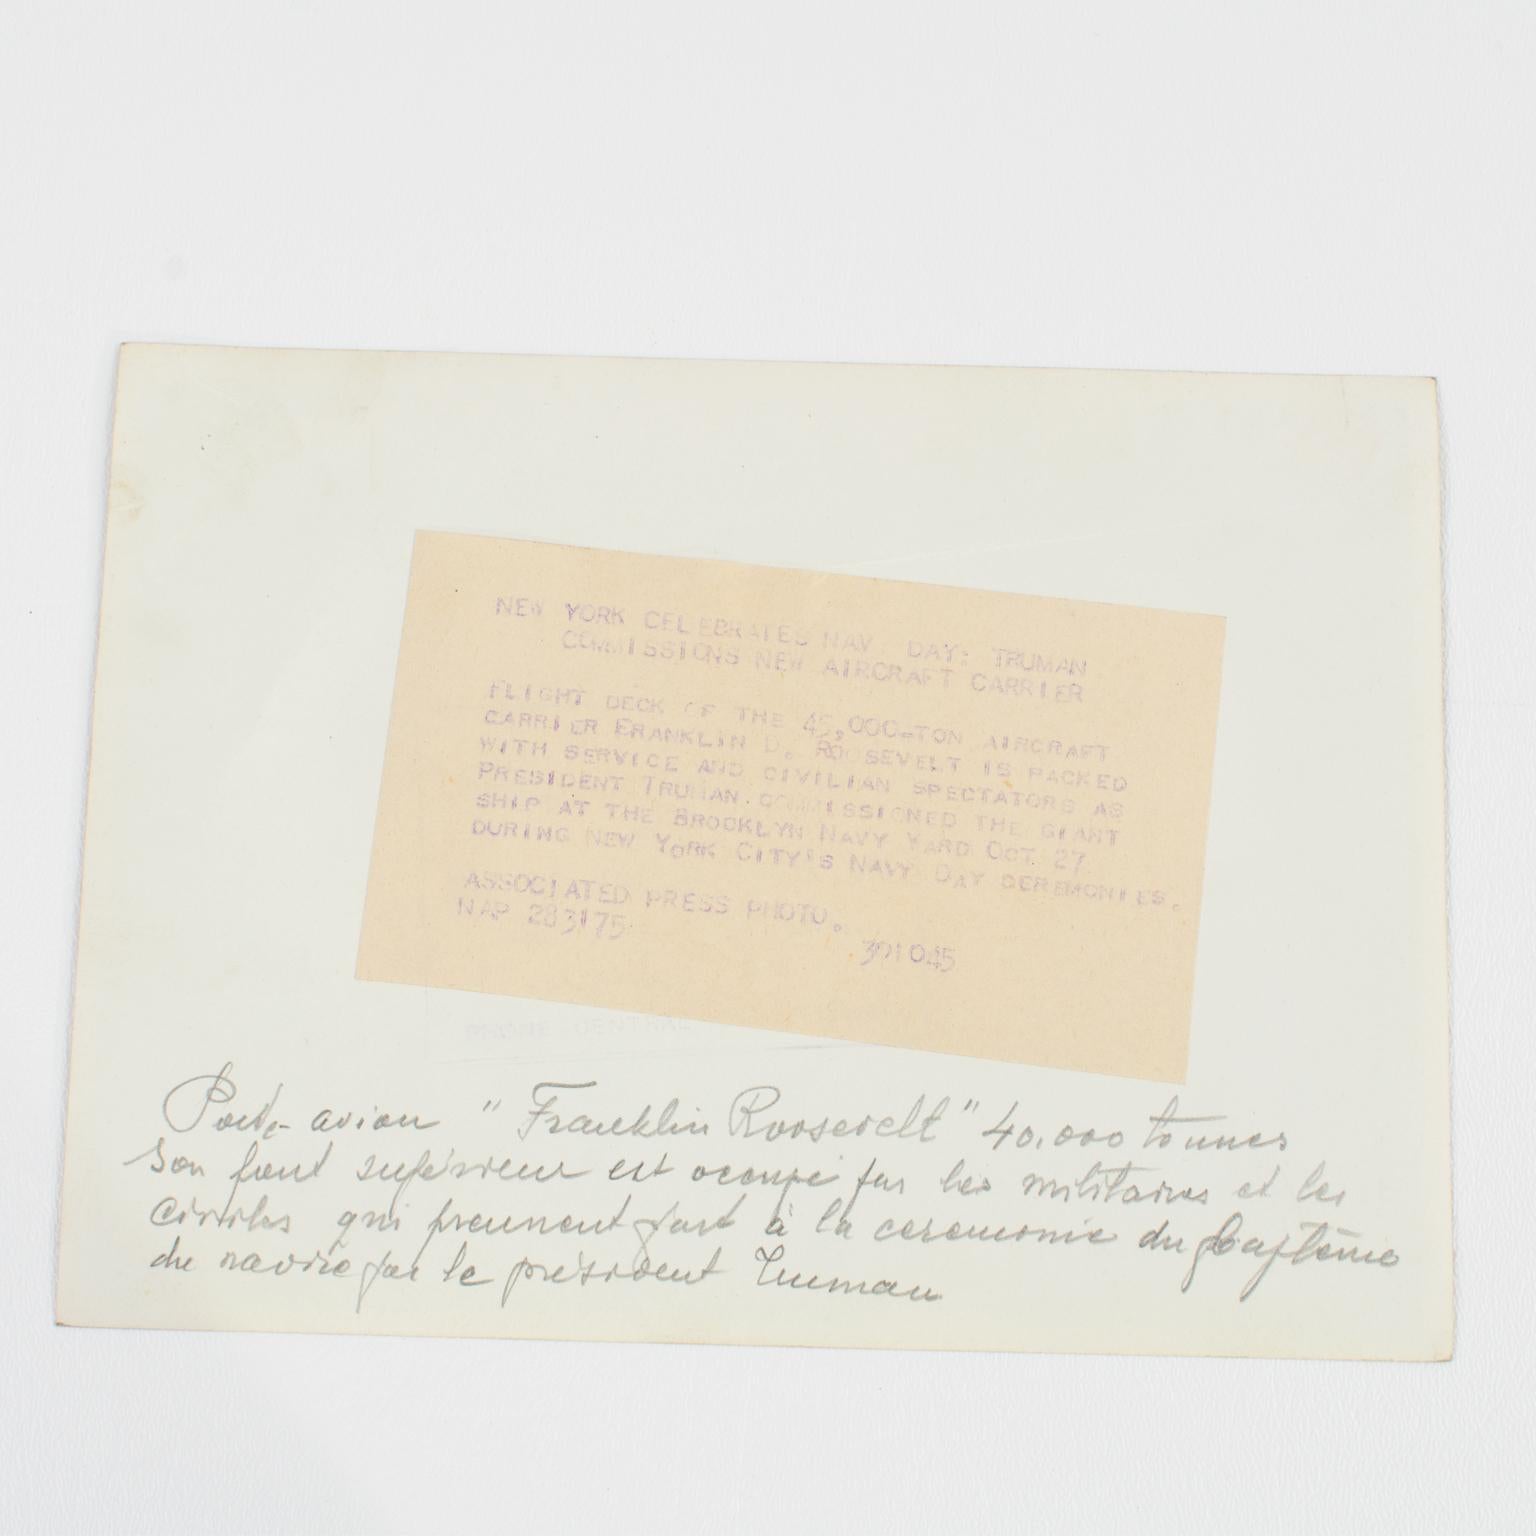 NEW YORK CELEBRATES NAV DAY: TRUMAN
COMMISSIONS NEW AIRCRAFT CARRIER
FLIGHT DECK OF THE 45,000-TON AIRCRAFT
CARRIER FRANKLIN D. ROOSEVELT IS PACKED
WITH SERVICE AND CIVILIAN SPECTATORS AS
PRESIDENT TRUMAN COMMISSIONED THE GIANT
SHIP AT THE BROOKLYN NAVY YARD OCT. 27
DURING NEW YORK CITY'S NAVY DAY CEREMONIES.
ASSOCIATED PRESS PHOTO.
NAP 283175
391045
PHONE CENTRAL
Porte-avion "Franklin Roosevelt" 40.000 tonnes
Son pont supérieur est occupé par les militaires et les
civiles qui prennent part à la ceremonie du baptême
du navire par le président Truman